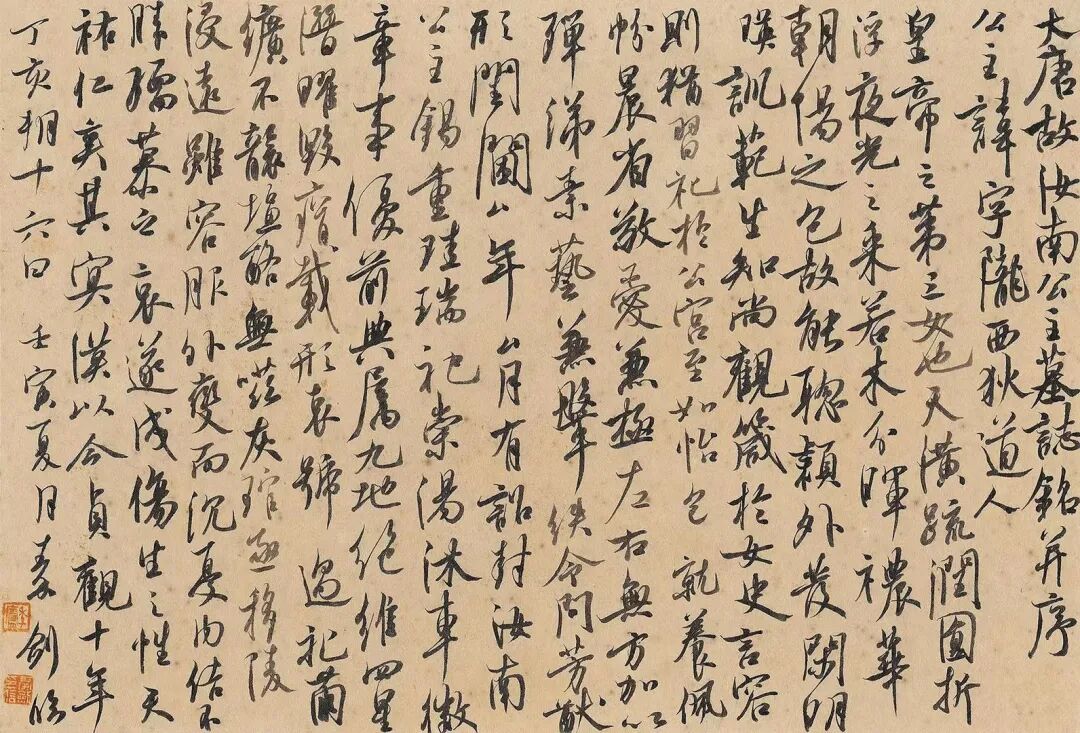 大唐故汝南公主墓誌銘并序
公主諱字隴西狄道人
皇帝之第三女也天潢疏潤圓折
浮夜光之采若木分暉禯華
朝陽之色故能聰穎外發閑明
暎訓範生知尚觀箴於女史言容
則猶習祀於公宮至如怡色就養佩
帉晨省敬愛兼極左右無方加以
學殫綈素藝兼鞶紩令問芳猷
形閨閫厶年厶月有詔封汝南
公主錫重珪瑞祀崇湯沐車徽
章事優前典屬九地絕維四星
潛曜毀瘠載形哀號過礼蠒
纊不襲塩酪無嗞灰琯亟移陵
浸遠雖容服外變而沉憂內結不
勝孺慕之哀遂成傷生之性天
祐仁奚其冥漠以今貞觀十年
丁亥朔十六日 壬寅夏月 劍臨